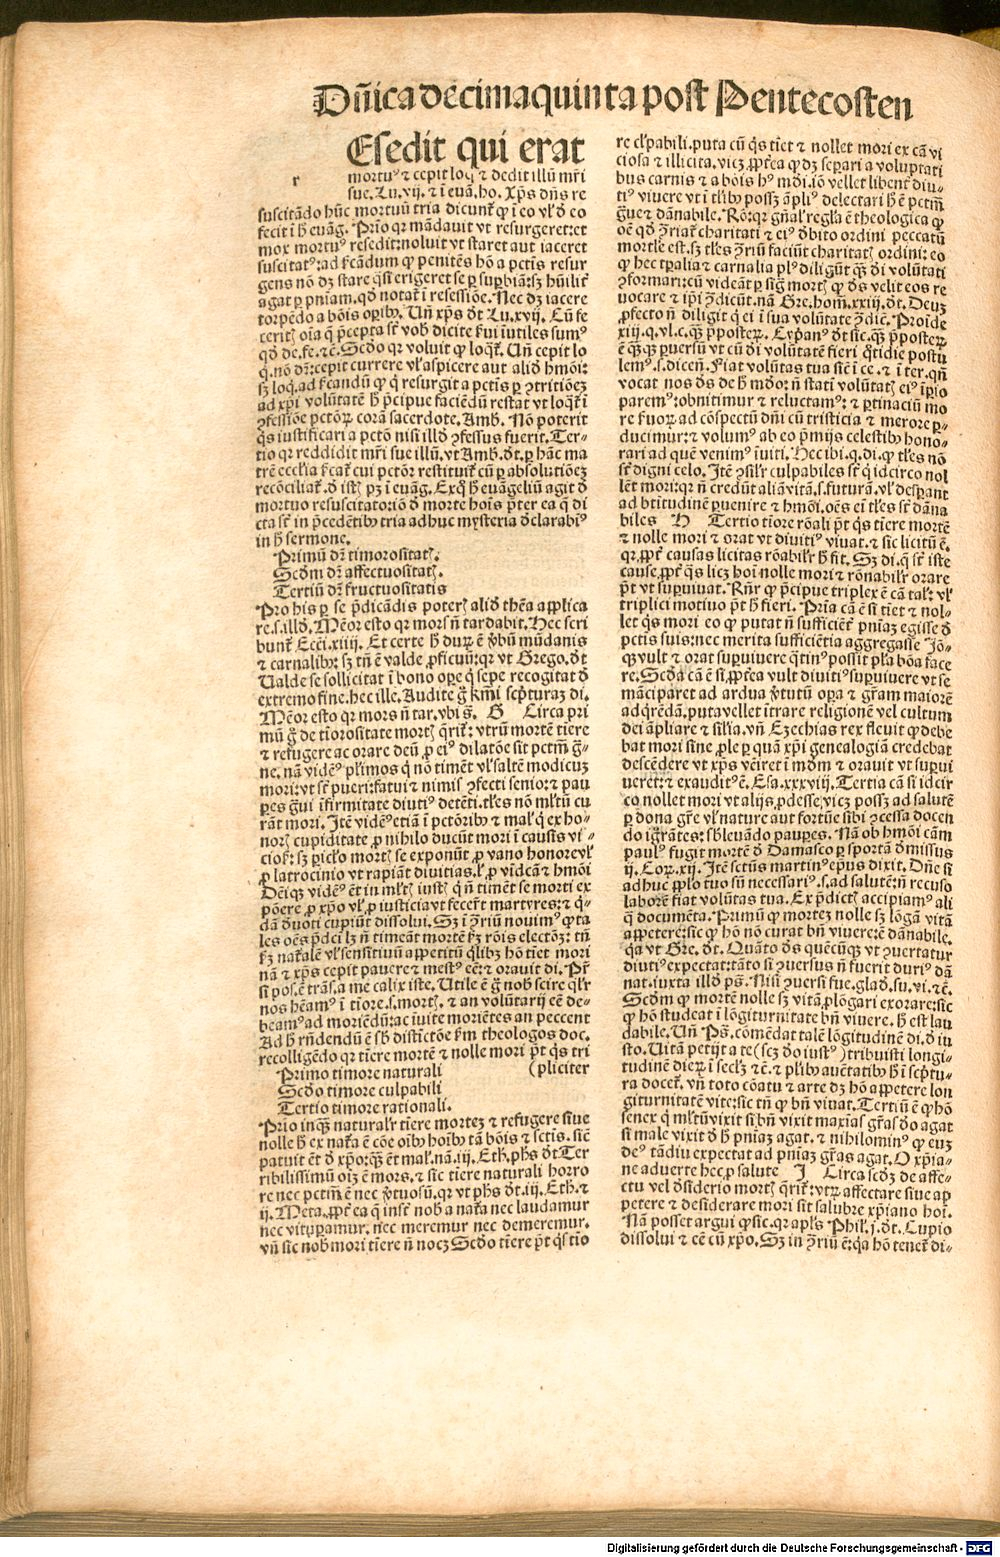 Dñica decimaquinta post Pentecosten
Esedit qui erat
r
mortuꝰ ⁊ cepit loq̄ ⁊ dedit illū mr̄i
sue. Lu. vij. ⁊ ī euā. ho. Xp̄s dn̄s re
suscitādo hūc mortuū tria dicunt᷑ ꝙ ī eo vl̓ ꝺ eo
fecit ī h̄ euāg. Prīo qꝛ mādauit vt resurgeret: et
mox mortuꝰ resedit: noluit vt staret aut iaceret
suscitatꝰ: ad l̓cādum ꝙ penitēs hō a pctīs resur
gens nō dꝫ stare q̄si erigeret se ꝑ suꝑbiā: sꝫ hūilit᷑
agat ꝑ pniam. qd̓ notat᷑ ī resessiōe. Nec dꝫ iacere
torpēdo a bōis oꝑibꝰ. Un̄ xp̄s d̄t Lu. xvij. Cū fe
ceritꝭ oīa q̄ p̄cepta sr̄ vob̓ dicite ẜui iutiles sumꝰ
qd̓ de. fe. ⁊c̄. Scd̓o qꝛ voluit ꝙ loq̄t᷑. Un̄ cepit lo
q̄. nō dr̄: cepit currere vl̓ aspicere aut alid̓ hmōi:
sꝫ loq̄. ad l̓candū ꝙ q̄ resurgit a pctīs ꝑ ꝯtritiōeꝫ
ad xp̄i volūtatē h̄ p̄cipue faciēdū restat vt loq̄t᷑ ī
ꝯfessiōe pctōꝝ corā sacerdote. Amb. Nō poterit
q̄s iustificari a pctō nisi illd̓ ꝯfessus fuerit. Ter-
tio qꝛ reddidit mr̄i sue illū. vt Amb. d̄t. ꝑ hāc ma
trē eccl̓ia l̓cat᷑ cui pctōr restituit᷑ cū ꝑ absolutiōeꝫ
recōciliat᷑. ꝺ istꝭ pꝫ ī euāg. Exq̄ h̄ euāgeliū agit ꝺ
mortuo resuscitatorio ꝺ morte hoīs p̄ter ea q̄ di
cta sr̄ in p̄cedētibꝰ tria adhuc mysteria ꝺclarabꝰ
in h̄ sermone.
Primū dr̄ timorositatꝭ.
Scd̓m dr̄ affectuositatꝭ.
Tertiū dr̄ fructuositatis
Pro his ꝑ se p̄dicādis poterꝭ alid̓ thēa applica
re. s. illd̓. Mēor esto qꝛ mors n̄ tardabit. Hec scri
bunt᷑ Ecci. xiiij. Et certe h̄ durꝫ ē v̓bū mūdanis
⁊ carnalibꝰ: sꝫ tn̄ ē valde ꝓficuū: qꝛ vt Grego. d̄t
Ualde se sollicitat ī bono oꝑe q̄ sepe recogitat ꝺ
extremo fine. hec ille. Audite g̊ ẜm̄i scp̄turaꝫ di.
Mēor esto qꝛ mors n̄ tar. vbi s̄. G Circa pri
mū g̊ de tiōrositate mortꝭ q̄rit᷑: vtrū mortē tiere
⁊ refugere ac orare deū ꝓ eiꝰ dilatōe sit pctm̄ g̊-
ne. nā vidēꝰ pl̓imos q̄ nō timēt vl̓ saltē modicuꝫ
mori: vt sr̄ pueri: fatui ⁊ nimis ꝯfecti senio: ⁊ pau
ꝑes g̊ui īfirmitate diutiꝰ detēti. tl̓es nō ml̓tū cu
rāt mori. Itē vidēꝰ etiā ī pctōribꝰ ⁊ mal̓ q̄ ex ho-
norꝭ cupiditate ꝓ nihilo ducūt mori ī causis vi-
ciosꝭ: sꝫ ꝑiclo mortꝭ se exponūt ꝓ vano honore vl̓
ꝓ latrocinio vt rapiāt diuitias. l̓ ꝓ vīdcā ⁊ hmōi
Deīqꝫ vidēꝰ ēt in ml̓tꝭ iustꝭ q̄ n̄ timēt se morti ex
pōere ꝓ xp̄o vl̓ ꝓ iusticia vt fecer̄t martyres: ⁊ q̄-
dā ꝺuoti cupiūt dissolui. Sꝫ ī ꝯ̄riū nouimꝰ ꝙ ta
les oēs p̄dci lꝫ n̄ timeāt mortē ẜꝫ rōis electōꝫ: tn̄
ẜꝫ nat᷑alē vl̓ sensitiuū appetitū q̄libꝫ hō tiet mori
nā ⁊ xp̄s cepit pauere ⁊ mestꝰ eē: ⁊ orauit di. Pr̄
si pos. ē trās. a me calix iste. Utile ē g̊ nob̓ scire ql̓r
nos hēamꝰ ī tiōre. s. mortꝭ. ⁊ an volūtarij eē de-
beamꝰ ad moriēdū: ac iuite moriētes an peccent
Ad h̄ rn̄dendū ē sb̓ distīctōe ẜm theologos doc.
recolligēdo qꝛ tiere mortē ⁊ nolle mori p̄t q̄s tri
Primo timore naturali (pliciter
Scd̓o timore culpabili
Tertio timore rationali.
Prīo inqꝫ naturalr̓ tiere morteꝫ ⁊ refugere siue
nolle h̄ ex nat᷑a ē cōe oībꝰ hoībꝰ tā bōis ⁊ sctīs. sic̄
patuit ēt ꝺ xp̄o: q̄ꝫ ēt mal̓. nā. iij. Eth. ph̓s d̄t Ter
ribilissimū oīꝫ ē mors. ⁊ sic tiere naturali horro
re nec pctm̄ ē nec v̓tuosū. qꝛ vt ph̓s d̄t. iij. Eth. ⁊
ij. Meta. ꝓpt᷑ ea q̄ insr̄ nob̓ a nat᷑a nec laudamur
nec vituꝑamur. nec meremur nec demeremur.
vn̄ sic nob̓ mori tiere n̄ nocꝫ Scd̓o tiere p̄t q̄s tīo
re cl̓pabili. puta cū q̄s tiet ⁊ nollet mori ex cā vi
ciosa ⁊ illicita. vicꝫ ꝓpt᷑ea ꝙ dꝫ seꝑari a voluptati
bus carnis ⁊ a bōis hꝰ mūdi. iō vellet libent᷑ diu-
tiꝰ viuere vt ī tl̓ibꝰ possꝫ āpliꝰ delectari h̄ ē pctm̄
g̊ue ⁊ dānabile. Rō: qꝛ gn̄al̓ regl̓a ē theologica ꝙ
oē qd̓ ꝯ̄riat᷑ charitati ⁊ eiꝰ ꝺbito ordini peccatū
mortl̓e est. sꝫ tl̓es ꝯ̄riū faciūt charitatꝭ ordini: eo
ꝙ hec tꝑalia ⁊ carnalia plꝰ diligūt q̄ꝫ di volūtati
ꝯformari: cū videāt ꝑ sig̊ mortꝭ ꝙ d̓s velit eos re
uocare ⁊ ip̄i ꝯ̄dicūt. nā Gre. hom̄. xxiij. d̄t. Deuꝫ
ꝓfecto n̄ diligit q̄ ei ī sua volūtate ꝯ̄dic̄. Proīde
xiij. q. vl. c. q̄ꝫ p̄posteꝝ. Cyp̓anꝰ d̄t sic. q̄ꝫ p̄posteꝝ
ē q̄ꝫqꝫ ꝑuersū vt cū di volūtatē fieri q̄tidie postu
lemꝰ. s. dicen̄. Fiat volūtas tua sic̄ ī ce. ⁊ ī ter. qn̄
vocat nos d̓s de h̄ mūdo: n̄ stati volūtatꝭ eiꝰ īꝑio
paremꝰ: obnitimur ⁊ reluctamꝰ: ⁊ ꝑtinaciū mo
re ẜuoꝝ ad cōspectū dn̄i cū tristicia ⁊ merore ꝑ-
ducimur: ⁊ volumꝰ ab eo p̄mijs celestibꝰ hono-
rari ad quē venimꝰ īuiti. Hec ibi. q. di. ꝙ tl̓es nō
sr̄ digni celo. Itē ꝯsil̓r culpabiles sr̄ q̄ idcirco nol
lēt mori: qꝛ n̄ credūt aliā vitā. s. futurā. vl̓ desꝑant
ad btītudinē ꝑuenire ⁊ hmōi. oēs ei tl̓es sr̄ dāna
biles H Tertio tiōre rōali p̄t q̄s tiere mortē
⁊ nolle mori ⁊ orat vt diutiꝰ viuat. ⁊ sic licitū ē.
qꝛ. ꝓpt᷑ causas licitas rōabil̓r h̄ fit. Sꝫ di. q̄ sr̄ iste
cause. ꝓpt᷑ q̄s licꝫ hoī nolle mori ⁊ rōnabil̓r orare
p̄t vt suꝑuiuat. Rn̄r ꝙ p̄cipue triplex ē cā talꝭ: vl̓
triplici motiuo p̄t h̄ fieri. Prīa cā ē si tiet ⁊ nol-
let q̄s mori eo ꝙ putat n̄ sufficiēt᷑ pniaꝫ egisse ꝺ
pctīs suis: nec merita sufficiētia aggregasse Iō-
qꝫ vult ⁊ orat suꝑuiuere q̄tinꝰ possit pl̓a bōa face
re. Scd̓a cā ē si. ꝓpt᷑ea vult diutiꝰ suꝑuiuere vt se
mācipare ad ardua v̓tutū oꝑa ⁊ gr̄am maiorē
ad q̄rēdā. puta vellet ītrare religionē vel cultum
dei āpliare ⁊ sil̓ia. vn̄ Ezechias rex fleuit ꝙ debe
bat mori sine ꝓle ꝑ quā xp̄i genealogiā credebat
descēdere vt xp̄s vēiret ī mūdm̄ ⁊ orauit vt suꝑui
ueret: ⁊ exauditꝰ ē. Esa. xxxviij. Tertia cā si idcir
co nollet mori vt alijs. ꝓdesse. vicꝫ possꝫ ad salutē
ꝑ dona gr̄e vl̓ nature aut fortūe sibi ꝯcessa docen
do igr̄ates: sb̓leuādo pauꝑes. Nā ob hmōi cām
paulꝰ fugit mortē ꝺ Damasco ꝑ sportā ꝺmissus
ij. Corꝫ. xij. Itē sctūs martinꝰ ep̄us dixit. Dn̄e si
adhuc ppl̓o tuo sū necessariꝰ. s. ad salutē: n̄ recuso
laborē fiat volūtas tua. Ex p̄dictꝭ accipiamꝰ ali
q̄ documēta. Primū ꝙ morteꝫ nolle sꝫ lōgā vitā
appetere: sic ꝙ hō nō curat bn̄ viuere: ē dānabile.
q̄a vt Gre. d̄t. Quāto d̓s quēcūqꝫ vt ꝯuertatur
diutiꝰ expectat: tāto si ꝯuersus n̄ fuerit duriꝰ dā
nat. iuxta illd̓ ps̄. Nisi ꝯuersi fue. glad. su. vi. ⁊c̄.
Scd̓m ꝙ mortē nolle sꝫ vitā ꝓlōgari exorare: sic
ꝙ hō studeat ī lōgiturnitate bn̄ viuere. h̄ est lau
dabile. Un̄ Ps̄. cōmēdat talē lōgitudinē di. ꝺ iu
sto. Uitā petijt a te (scꝫ ꝺo iustꝰ) tribuisti longi-
tudinē dieꝝ ī secl̓ꝫ ⁊c̄. ⁊ pl̓ibꝰ auētatibꝰ h̄ ī scp̄tu-
ra docet᷑. vn̄ toto cōatu ⁊ arte dꝫ hō appetere lon
giturnitatē vite: sic tn̄ ꝙ bn̄ viuat. Tertiū ē ꝙ hō
senex q̄ ml̓tū vixit si bn̄ vixit maxīas gr̄as ꝺo agat
si male vixit ꝺ h̄ pniaꝫ agat. ⁊ nihilominꝰ ꝙ euꝫ
deꝰ tādiu expectat ad pniaꝫ gr̄as agat. O xp̄ia-
ne aduerte hec ꝓ salute I Circa scd̓ꝫ de affe-
ctu vel ꝺsiderio mortꝭ q̄rit᷑: vtꝝ affectare siue ap
petere ⁊ desiderare mori sit salubre xp̄iano hoī.
Nā posset argui ꝙ sic. qꝛ apl̓s Phil̓. j. d̄t. Cupio
dissolui ⁊ eē cū xp̄o. Sꝫ in ꝯ̄riū ē: q̄a hō tenet᷑ di-
Digitalisierung gefördert durch die Deutsche Forschungsgemeinschaft - DFG